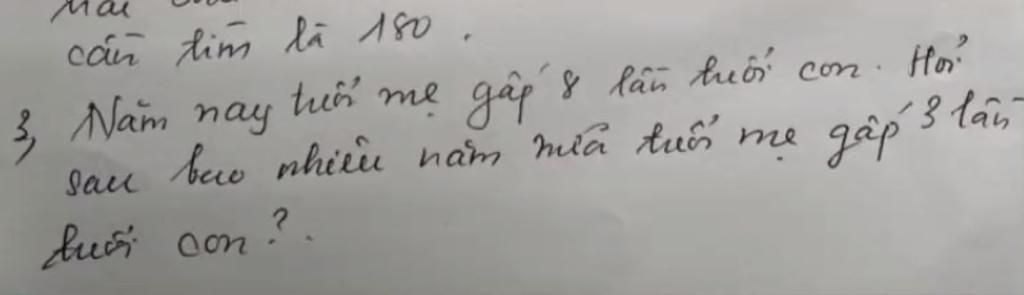 cần tìm là 180.
3, Năm nay tuổi mẹ gấp 8 lần tuổi con. Hỏi
sau bao nhiêu năm nữa tuổi mẹ gấp 3 lần
tuổi con?.